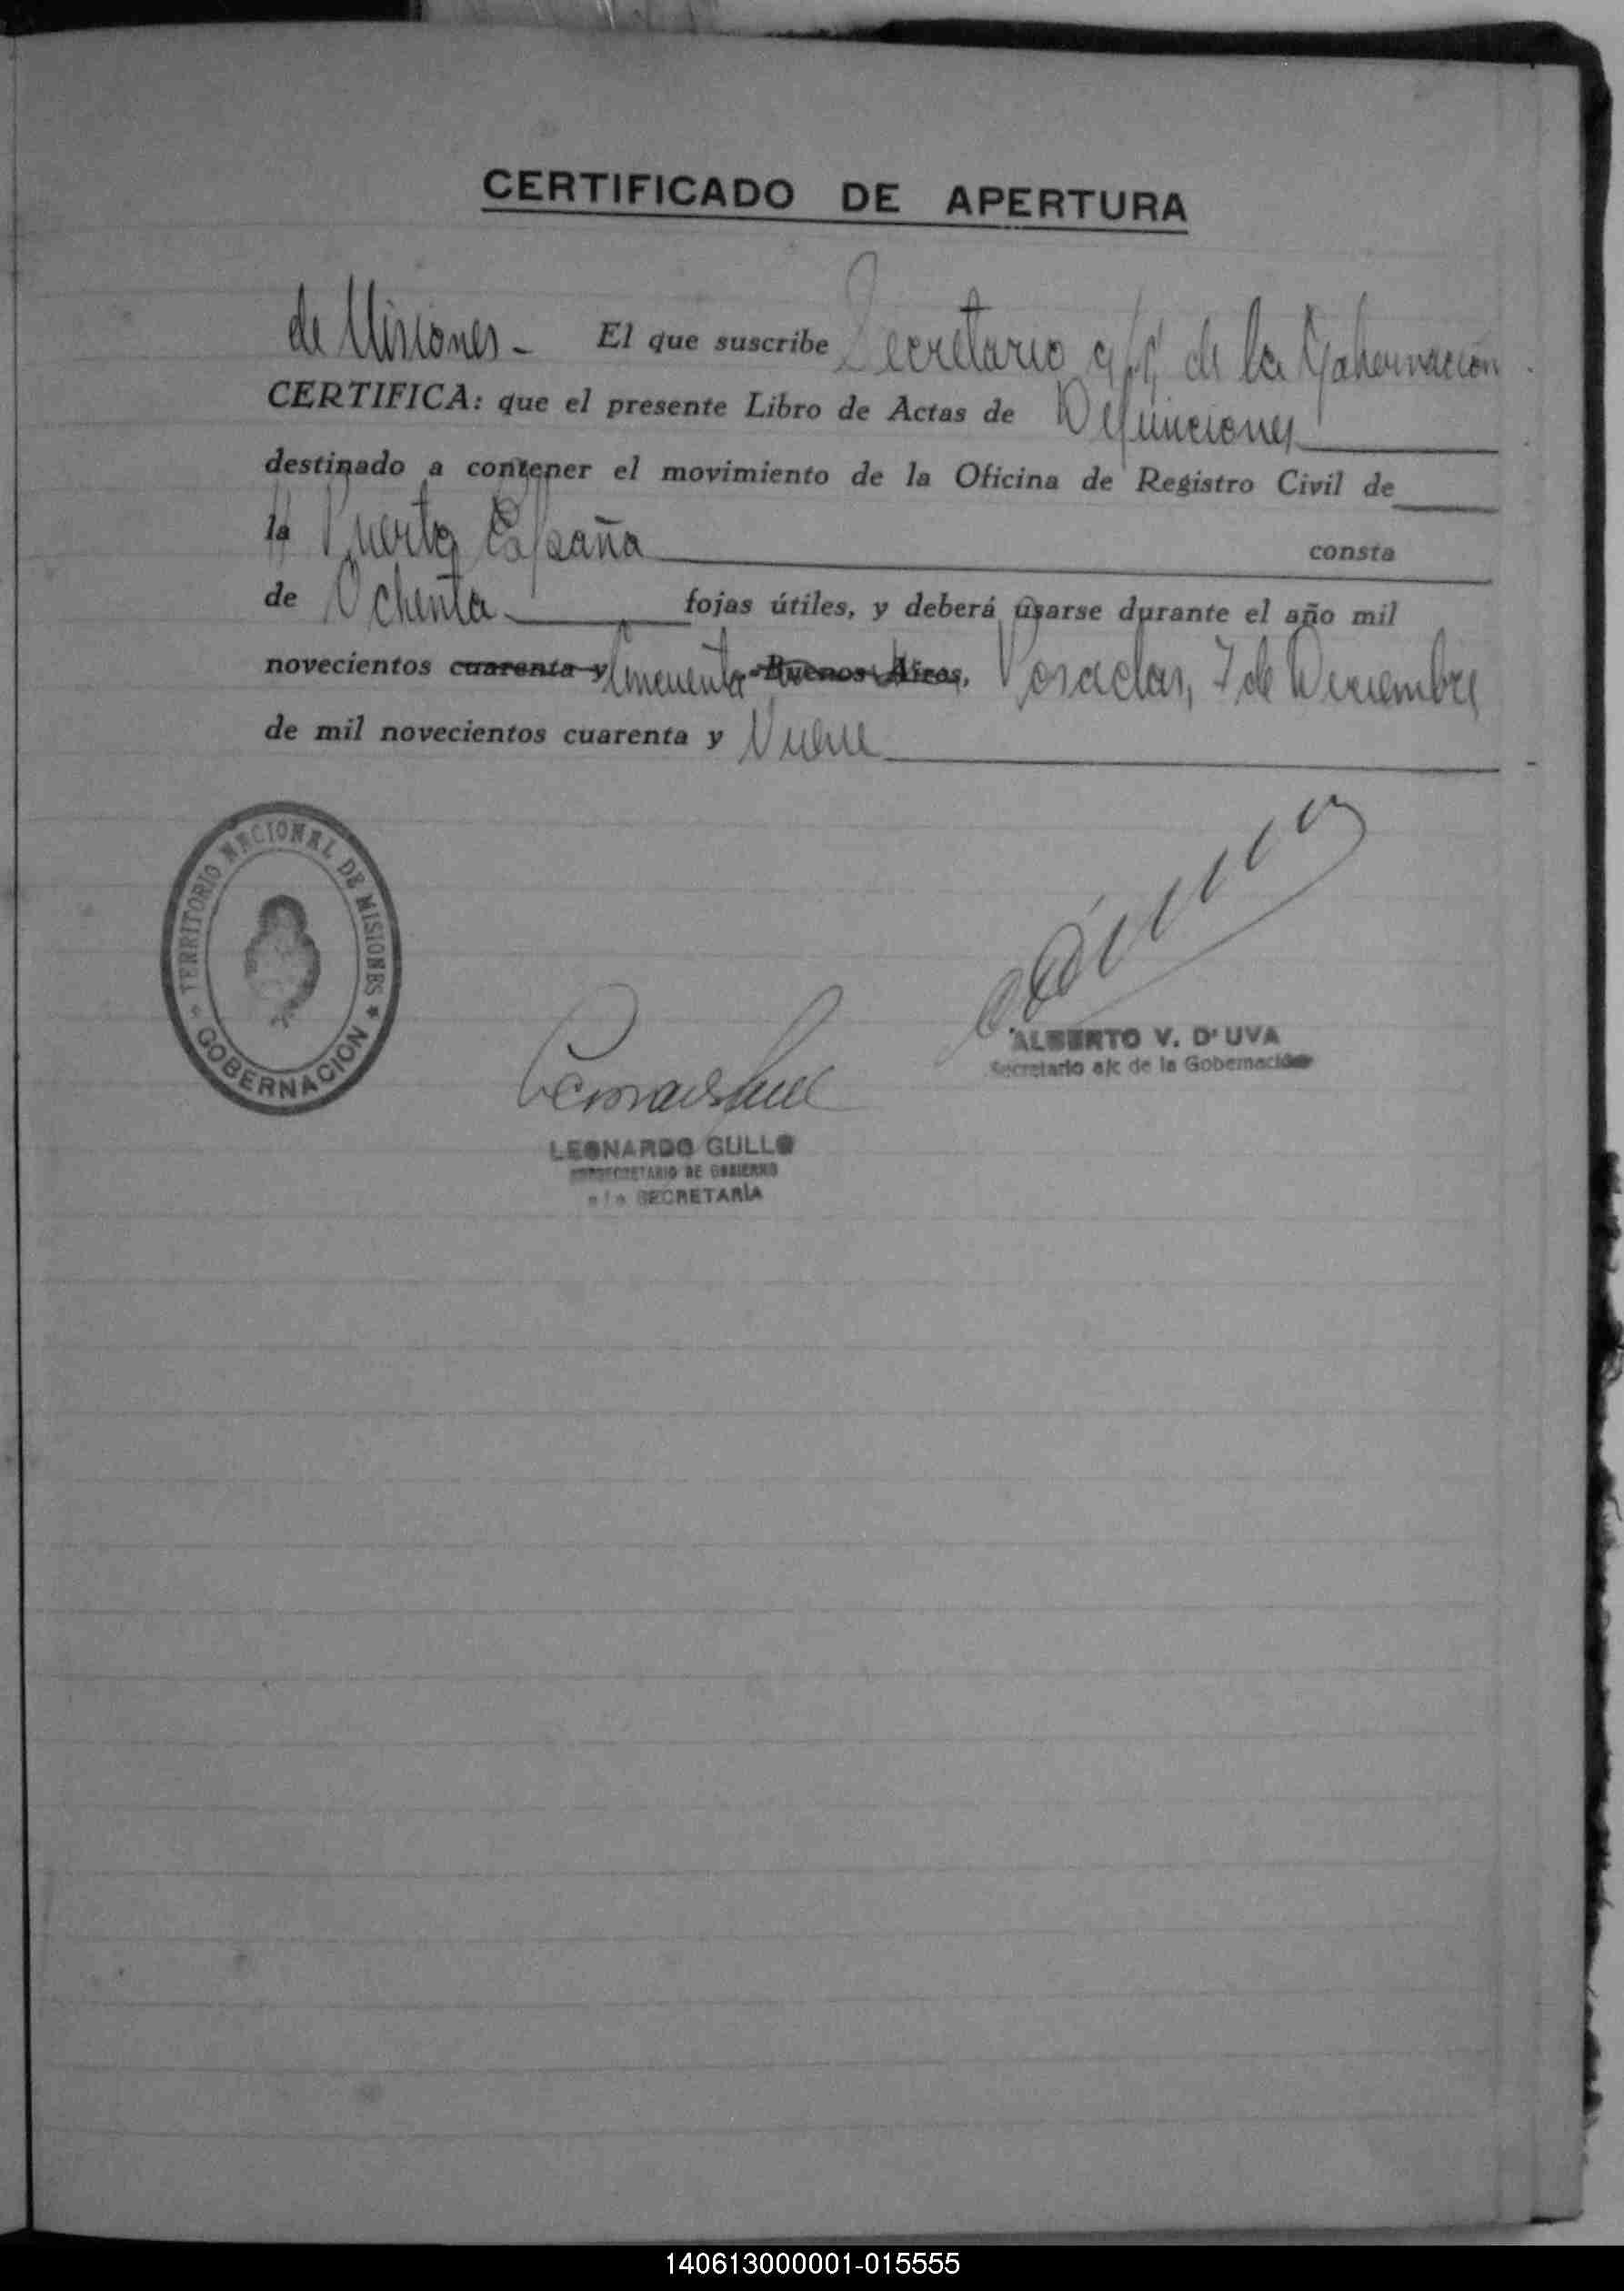 CERTIFICADO DE APERTURA
de Misiones - El que suscribe Secretario a/c de la Gobernación
CERTIFICA: que el presente Libro de Actas de Defunciones
destinado a contener el movimiento de la Oficina de Registro Civil de
la Puerto España consta
de Ochenta fojas útiles, y deberá usarse durante el año mil
novecientos cuarenta y Cincuenta Buenos Aires, Posadas, 7 de Diciembre
de mil novecientos cuarenta y Nueve
TERRITORIO NACIONAL DE MISIONES
GOBERNACION
ALBERTO V. D'UVA
Secretario a/c de la Gobernación
LEONARDO GULLO
SUBSECRETARIO DE GOBIERNO
a/c SECRETARÍA
140613000001-015555